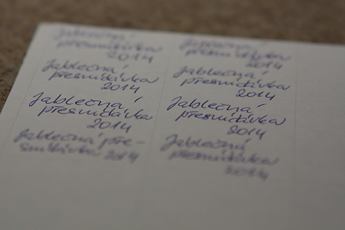 Jablečná
přesnídávka
2014
Jablečná
přesnídávka
2014
Jablečná
přesnídávka
2014
Jablečná pře-
snídávka 2014
Jablečná
přesnídávka
2014
Jablečná
přesnídávka
2014
Jablečná
přesnídávka
2014
Jablečná
přesnídávka
2014